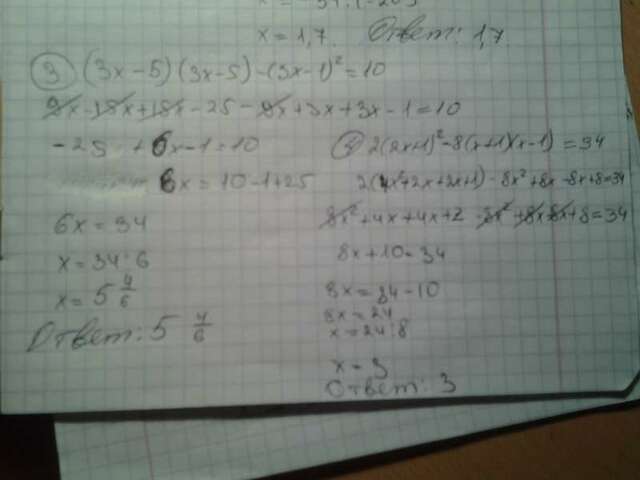 x = 1,7. Ответ: 1,7.
3 (3x-5)(3x-5)-(3x-1)²=10
9x-15x+15x-25-9x+3x+3x-1=10
-25 +6x-1=10
6x=10-1+25
6x=34
x=34:6
x=5 4/6
Ответ: 5 4/6
2(2x+1)²-8(x+1)(x-1)=34
2(4x²+2x+2x+1)-8x²+8x-8x+8=34
8x²+4x+4x+2-8x²+8x-8x+8=34
8x+10=34
8x=34-10
8x=24
x=24:8
x=3
Ответ: 3